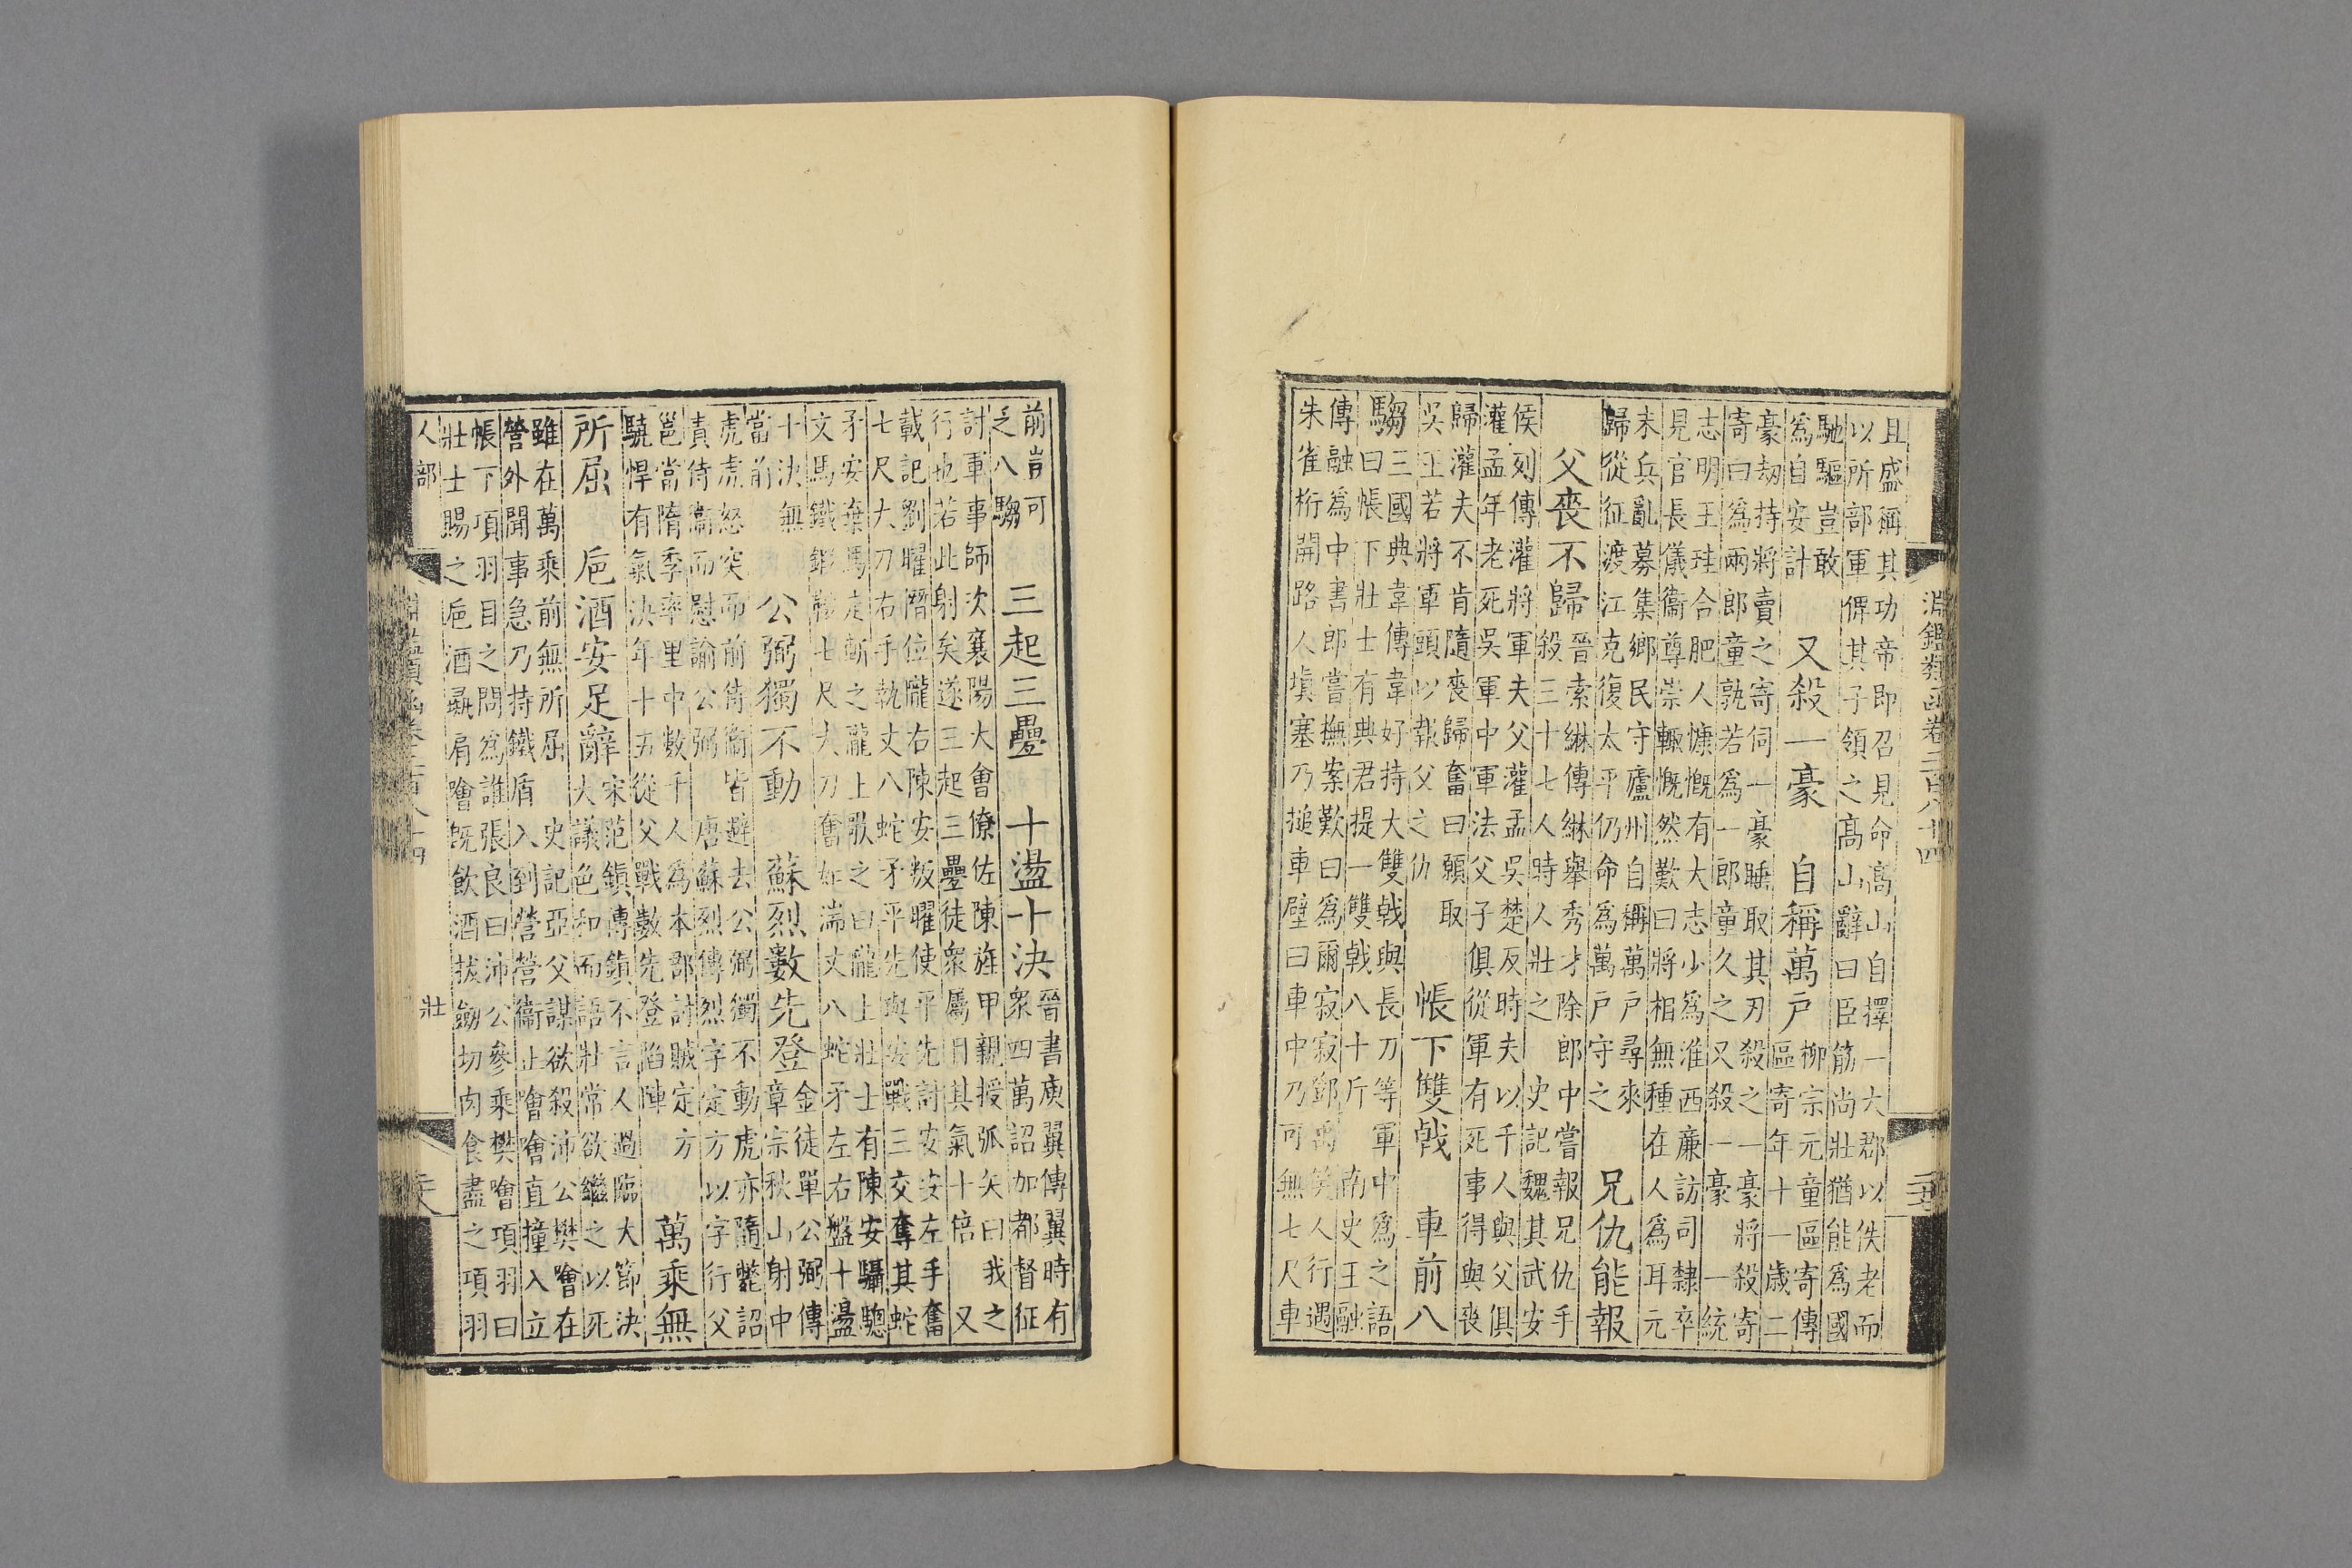 淵鑑類函卷三百八十四
且盛稱其功帝即召見命高山自擇一大郡以佚老而
以所部軍俾其子領之高山辭曰臣筋尚壯猶能爲國
馳驅豈敢
爲自安計
又殺一豪　自稱萬戶
柳宗元童區寄傳
區寄年十一歲二
豪劫持將賣之寄伺一豪睡取其刃殺之一豪將殺寄
寄曰爲兩郎童孰若爲一郎童久之又殺一豪　一統
志明王珪合肥人慷慨有大志少爲淮西廉訪司隸卒
見官長儀衞尊崇輒慨然歎曰將相無種在人爲耳元
末兵亂募集鄉民守廬州自稱萬戶尋來
歸從征渡江克復太平仍命爲萬戶守之
兄仇能報
父喪不歸
晉索綝傳綝舉秀才除郎中嘗報兄仇手
殺三十七人時人壯之　史記魏其武安
侯列傳灌將軍夫父灌孟吳楚反時夫以千人與父俱
灌孟年老死吳軍中軍法父子俱從軍有死事得與喪
歸灌夫不肯隨喪歸奮曰願取
吳王若將軍頭以報父之仇
帳下雙戟　車前八
騶
三國典韋傳韋好持大雙戟與長刀等軍中爲之語
曰帳下壯士有典君提一雙戟八十斤　南史王融
傳融爲中書郎嘗撫案歎曰爲爾寂寂鄧禹笑人行遇
朱雀桁開路人塡塞乃搥車壁曰車中乃可無七尺車
前豈可
乏八騶
三起三疊　十盪十決
晉書庾翼傳翼時有
衆四萬詔加都督征
討軍事師次襄陽大會僚佐陳旌甲親授弧矢曰我之
行也若此射矣遂三起三疊徒衆屬目其氣十倍　又
載記劉曜僭位隴右陳安叛曜使平先討安安左手奮
七尺大刀右手執丈八蛇矛平先與安戰三交奪其蛇
矛安棄馬走斬之隴上歌之曰隴上壯士有陳安驪驄
文馬鐵鍛鞍七尺大刀奮如湍丈八蛇矛左右盤十盪
十決無
當前
公弼獨不動　蘇烈數先登
金徒單公弼傳
章宗秋山射中
虎虎怒突而前侍衞皆避去公弼獨不動虎亦隨斃詔
責侍衞而慰諭公弼　唐蘇烈傳烈字定方以字行父
邕當隋季率里中數千人爲本郡討賊定方
驍悍有氣決年十五從父戰數先登陷陣
萬乘無
所屈　巵酒安足辭
宋范鎮傳鎮不言人過臨大節決
大議色和而語壯常欲繼之以死
雖在萬乘前無所屈　史記亞父謀欲殺沛公樊噲在
營外聞事急乃持鐵盾入到營營衞止噲噲直撞入立
帳下項羽目之問爲誰張良曰沛公參乘樊噲項羽曰
壯士賜之巵酒彘肩噲既飲酒拔劒切肉食盡之項羽
人部
壯